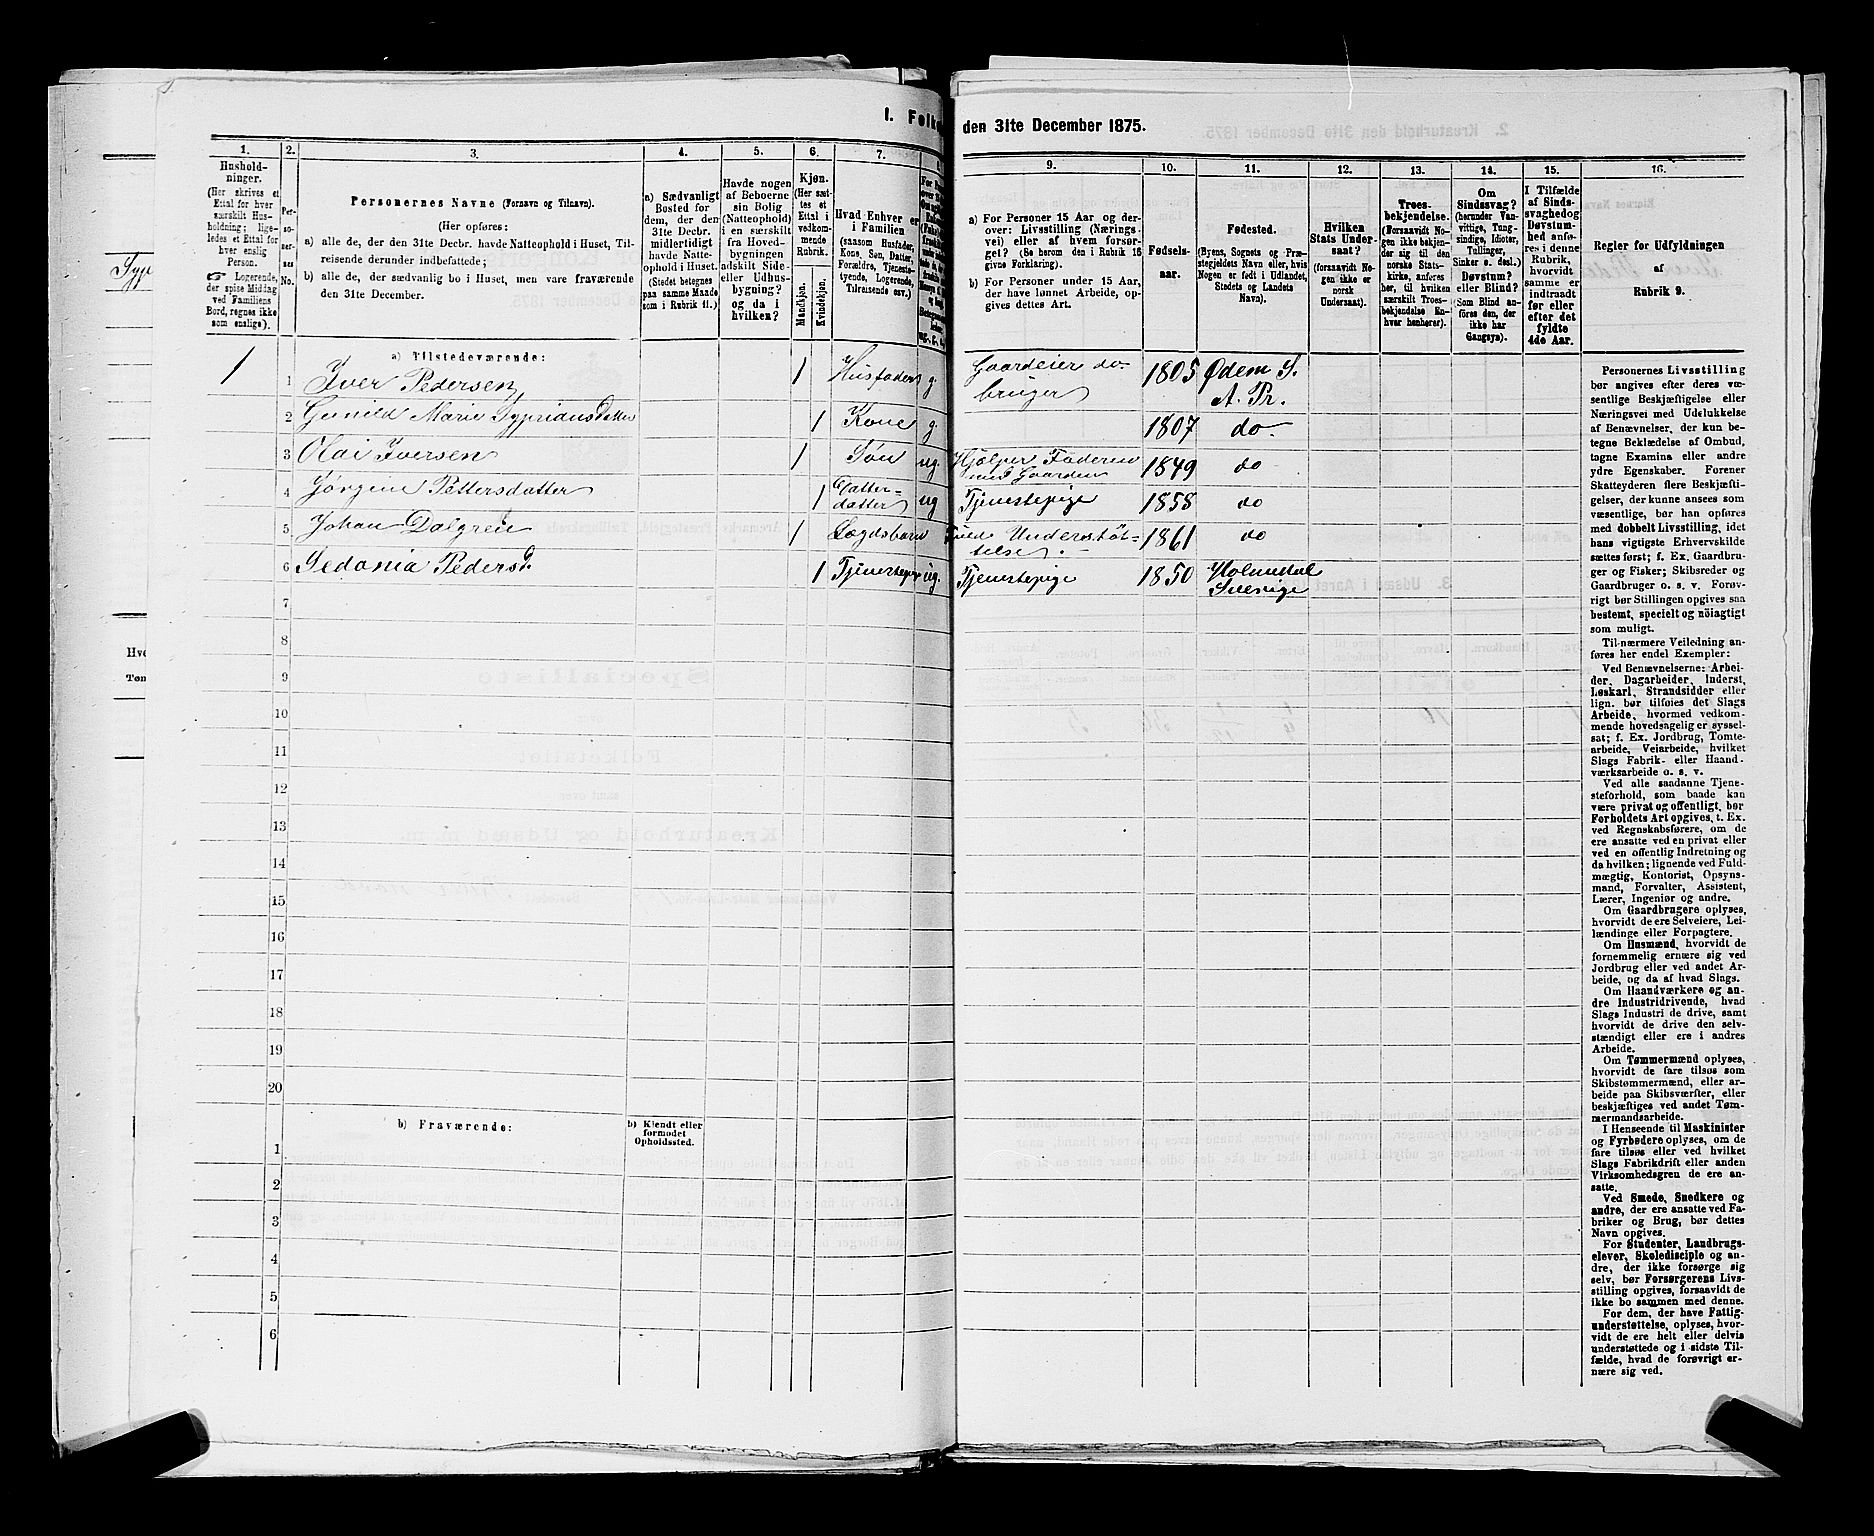 I. Folke
den 31te December 1875.
1.
Husholdninger.
(Her skrives et
Ettal for hver
særskilt Husholdning;
ligeledes et Ettal for
hver enslig
Person.
☞ Logerende,
der spise Middag
ved Familiens
Bord, regnes ikke
som enslige).
2.
Personernes No.
3.
Personernes Navne (Fornavn og Tilnavn).
(Her opføres:
a) alle de, der den 31te Decbr. havde Natteophold i Huset, Tilreisende derunder indbefattede;
b) alle de, der sædvanlig bo i Huset, men vare fraværende
den 31te December.
4.
a) Sædvanligt
Bosted for
dem, der den
31te Decbr.
midlertidigt
havde Natteophold i Huset.
(Stedet betegnes
paa samme Maade
som i Rubrik 11.)
5.
Havde nogen
af Beboerne
sin Bolig
(Natteophold)
i en særskilt
fra Hovedbygningen
adskilt Side-
eller Udhusbygning?
og da i
hvilken?
6.
Kjøn.
(Her sættes et
Ettal i
vedkommende
Rubrik.
Mandkjøn.
Kvindekjøn.
7.
Hvad Enhver er
i Familien
(saasom Husfader,
Kone, Søn, Datter,
Forældre, Tjenestetyende, Logerende,
Tilreisende osv.)
9.
a) For Personer 15 Aar og derover: Livsstilling (Næringsvei) eller af hvem forsørget? (Se herom den i Rubrik 16
givne Forklaring).
b) For Personer under 15 Aar,
der have lønnet Arbeide, opgives dettes Art.
10.
Fødselsaar.
11.
Fødested.
(Byens, Sognets og Præstegjeldets Navn eller, hvis
Nogen er født i Udlandet,
Stedets og Landets
Navn).
12.
Hvilken
Stats Undersaat?
(forsaavidt Nogen ikke er
norsk
Undersaat).
13.
Troesbekjendelse.
(Forsaavidt Nogen ikke bekjender sig til den
norske Statskirke, anføres
her, til hvilken
særskilt Troesbekjendelse Enhver henhører).
14.
Om
Sindssvag?
(herunder Vanvittige, Tungsindige, Idioter,
Tullinger,
Sinker o. desl.).
Døvstum?
eller Blind?
(Som Blind anføres den, der
ikke har
Gangsyn).
15.
I Tilfælde
af Sindssvaghed og
Døvstumhed anføres i denne
Rubrik,
hvorvidt
samme er
indtraadt
før eller
efter det
fyldte
4de Aar.
16.
Regler for Udfyldningen
af
Rubrik 9.
a) Tilstedeværende:
1 1 Iver Pedersen 1 Husfader g. Gaardeier do bruger 1805 Ødem S. A. Pr.
2 Gunild Marie Sypriansdatter 1 Kone g. 1807 do.
3 Olai Iversen 1 Søn ug. Hjælper Faderen med Gaarden 1849 do
4 Jørgine Pettersdatter 1 Datterdatter ug Tjenestepige 1858 do
5 Johan Dalgren 1 Lægdsbarn Understøttelse. 1861 do
6 Sedania Pedersd. 1 Tjenestepige ug. Tjenestepige 1850 Holmedal Sverige
7
8
9
10
11
12
13
14
15
16
17
18
19
20
b) Fraværende:
b) Kjendt eller
formodet
Opholdssted.
1
2
3
4
5
6
Personernes Livsstilling
bør angives efter deres væsentlige Beskjæftigelse eller
Næringsvei med Udelukkelse
af Benævnelser, der kun betegne Beklædelse af Ombud,
tagne Examina eller andre
ydre Egenskaber. Forener
Skatteyderen flere Beskjæftigelser, der kunne ansees som
væsentlige, bør han opføres
med dobbelt Livsstilling, idet
hans vigtigste Erhvervskilde
sættes forst; f. Ex. Gaardbruger og Fisker; Skibsreder og
Gaardbruger o. s. v. Forøvrigt bør Stillingen opgives saa
bestemt, specielt og nöiagtigt
som muligt.
Til nærmere Veiledning anføres her endel Exempler:
Ved Benævnelserne: Arbeider, Dagarbeider, Inderst,
Løskarl, Strandsidder eller
lign. bør tilføies det Slags
Arbeide, hvormed vedkommende hovedsagelig er sysselsat; f. Ex. Jordbrug, Tomtearbeide, Veiarbeide, hvilket
Slags Fabrik- eller Haandværksarbeide o. s. v.
Ved alle saadanne Tjenesteforhold, som baade kan
være privat og offentligt, bør
Forholdets Art opgives, t. Ex.
ved Regnskabsførere, om de
ere ansatte ved en privat eller
ved en offentlig Indretning og
da hvilken; lignende ved Fuldmægtig, Kontorist, Opsynsmand, Forvalter, Assistent,
Lærer, Ingeniør og andre.
Om Gaardbrugere oplyses,
hvorvidt de ere Selveiere, Leilændinge eller Forpagtere.
Om Husmænd, hvorvidt de
fornemmelig ernære sig ved
Jordbrug eller ved andet Arbeide, og da af hvad Slags.
Om Haandværkere og andre Industridrivende, hvad
Slags Industri de drive, samt
hvorvidt de drive den selvstændigt eller ere i andres
Arbeide.
Om Tømmermænd oplyses,
hvorvidt de fare tilsøs som
Skibstømmermænd, eller arbeide paa Skibsværfter, eller
beskjæftiges ved andet Tømmermandsarbeide.
I Henseende til Maskinister
og Fyrbødere oplyses, om de
fare tilsøs eller ved hvilket
Slags Fabrikdrift eller anden
Virksomhedsgren de ere ansatte.
Ved Smede, Snedkere og
andre, der ere ansatte ved Fabriker og Brug, bør dettes
Navn opgives.
For Studenter, Landbrugselever, Skoledisciple og andre, der ikke forsørge sig
selv, bør Forsørgerens Livsstilling opgives, forsaavidt de
ikke bo sammen med denne.
For dem, der have Fattigunderstøttelse, oplyses, hvorvidt de ere helt eller delvis
understøttede og i sidste Tilfælde, hvad de forøvrigt ernære sig ved.